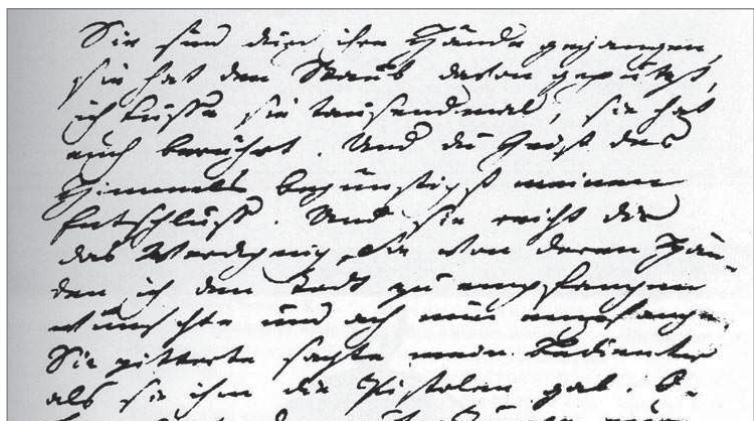 Sie sind durch ihre Hände gegangen,
sie hat den Staub davon geputzt,
ich küsse sie tausendmal, sie hat
euch berührt. Und du Geist des
Himmels begünstigst meinen
Entschluss. Und sie reicht dir
das Werckzeug, Sie von deren Hän-
den ich den Todt zu empfangen
wünschte und ach nun empfange.
Sie zitterte sagte mein Bedienter
als sie ihm die Pistolen gab. O